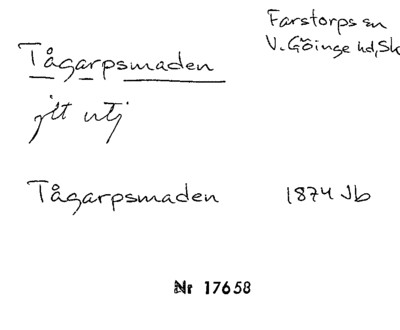 Farstorps sn
V. Göinge hd, Sk
Tågarpsmaden
Tågarpsmaden 1874 Jb
Nr 17658